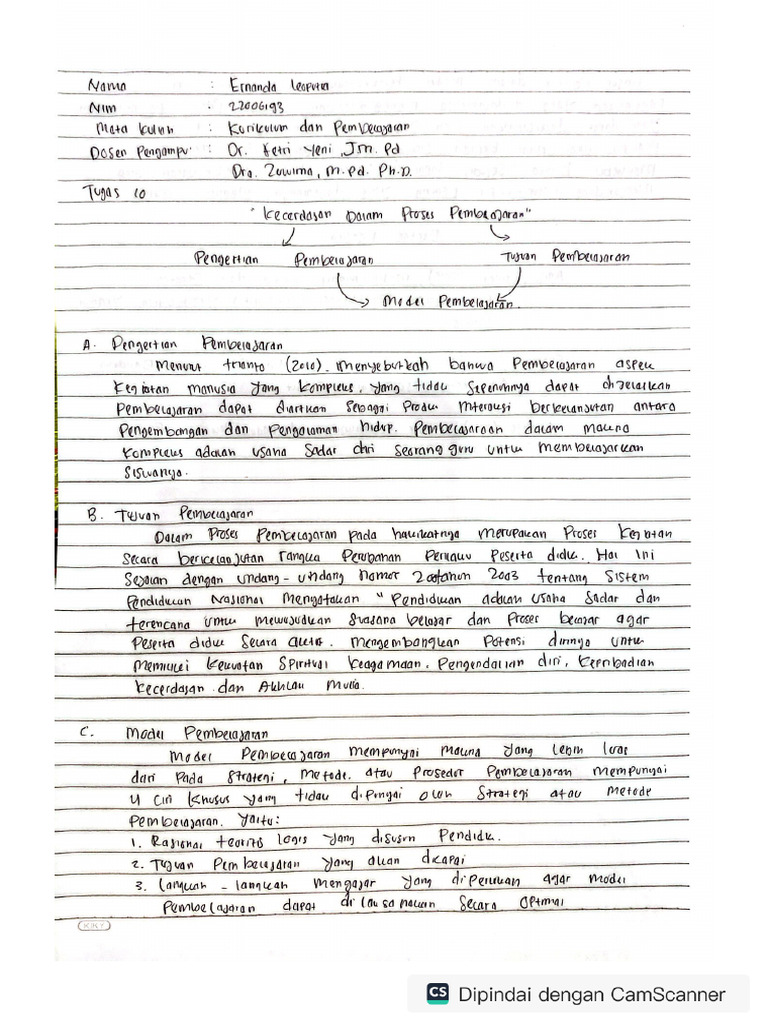 Nama : Ernanda Leoputra
Nim : 22006193
Mata kuliah : Kurikulum dan Pembelajaran
Dosen Pengampu : Dr. Fetri Yeni J, M. Pd
Dra. Zuwirna, M.Pd. Ph.D.
Tugas 10
"Kecerdasan Dalam Proses Pembelajaran"
Pengertian Pembelajaran Tujuan Pembelajaran
Model Pembelajaran
A. Pengertian Pembelajaran
Menurut trianto (2010). menyebutkah bahwa Pembelajaran aspek
Kegiatan manusia yang kompleks, yang tidak sepenuhnya dapat dijelaskan
Pembelajaran dapat diartikan sebagai Produk interaksi berkelanjutan antara
Pengembangan dan Pengalaman hidup. Pembelajaraan dalam makna
Kompleks adalah usaha sadar dari seorang guru untuk membelajarkan
siswanya.
B. Tujuan Pembelajaran
Dalam Proses Pembelajaran pada hakikatnya merupakan Proses Kegiatan
Secara berkelanjutan rangka Perubahan Perilaku Peserta didik. Hal Ini
Sejalan dengan Undang - undang nomor 20 tahun 2003 tentang Sistem
Pendidikan Nasional Menyatakan "Pendidikan adalah usaha Sadar dan
terencana untuk mewujudkan suasana belajar dan Proses belajar agar
Peserta didik Secara aktif. mengembangkan Potensi dirinya untuk
Memiliki Kekuatan Spiritual Keagamaan. Pengendalian diri, Kepribadian
Kecerdasan dan Akhlak Mulia.
C. Model Pembelajaran
Model Pembelajaran mempunyai makna yang lebih luas
dari Pada Strategi, metode. atau Prosedur Pembelajaran mempunyai
4 Ciri Khusus yang tidak dipunyai oleh Strategi atau metode
Pembelajaran. yaitu:
1. Rasional teoritis logis yang disusun Pendidik.
2. Tujuan Pembelajaran yang akan dicapai
3. Langkah - langkah mengajar yang diperlukan agar model
Pembelajaran dapat di laksanakan Secara optimal
KIKY
CS Dipindai dengan CamScanner